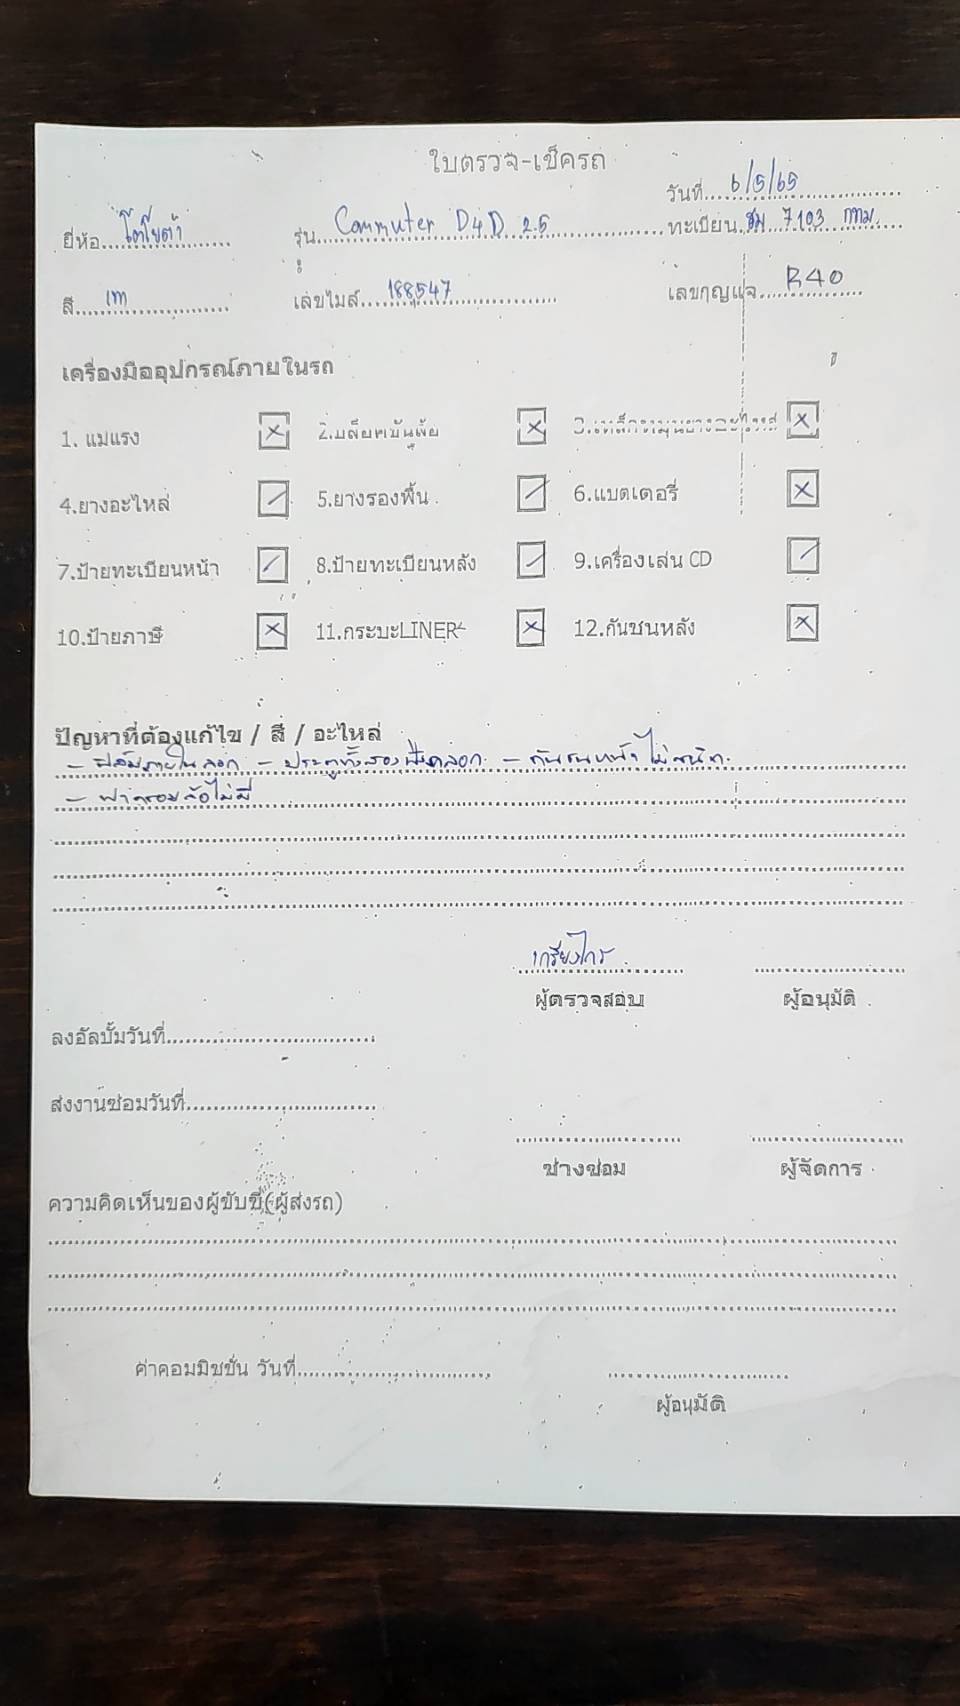 ใบตรวจ-เช็ครถ
วันที่ 6/5/65
ยี่ห้อ โตโยต้า รุ่น Commuter D4D 2.5 ทะเบียน ฮม 7103 กทม
สี เทา เลขไมล์ 188547 เลขกุญแจ R40
เครื่องมืออุปกรณ์ภายในรถ
1. แม่แรง 2.บล็อคขันล้อ 3.เหล็กหมุนยางอะไหล่
4.ยางอะไหล่ 5.ยางรองพื้น 6.แบตเตอรี่
7.ป้ายทะเบียนหน้า 8.ป้ายทะเบียนหลัง 9.เครื่องเล่น CD
10.ป้ายภาษี 11.กระบะLINER 12.กันชนหลัง
ปัญหาที่ต้องแก้ไข / สี / อะไหล่
- ฟิล์มภายในลอก - ประตูทั้งสองฝั่งถลอก - กันชนหน้าไม่สนิท
- ฝาครอบล้อไม่มี
เกรียงไกร
ผู้ตรวจสอบ ผู้อนุมัติ
ลงอัลบั้มวันที่
ส่งงานซ่อมวันที่
ช่างซ่อม ผู้จัดการ
ความคิดเห็นของผู้ขับขี่(ผู้ส่งรถ)
ค่าคอมมิชชั่น วันที่
ผู้อนุมัติ